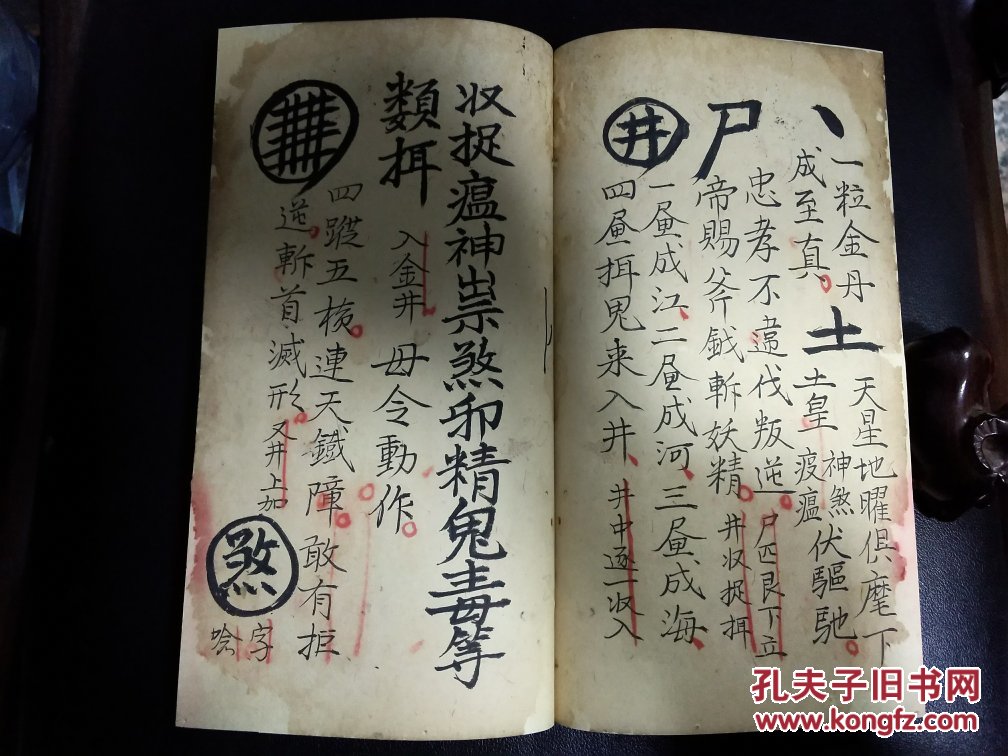 丶 一粒金丹
成至真 土 天星地曜俱麾下
土皇 神煞伏驅馳
疫瘟
忠孝不違伐叛逆 尸匹艮下立
尸 帝賜斧鉞斬妖精 井收捉挕
一畫成江二畫成河三畫成海
井 四畫挕鬼来入井 井中逐一收入
收捉瘟神祟煞邪精鬼毒等
類挕 入金井 毋令動作
四蹤五横連天鐵障敢有拒
逆斬首滅形 又井上加
煞
字